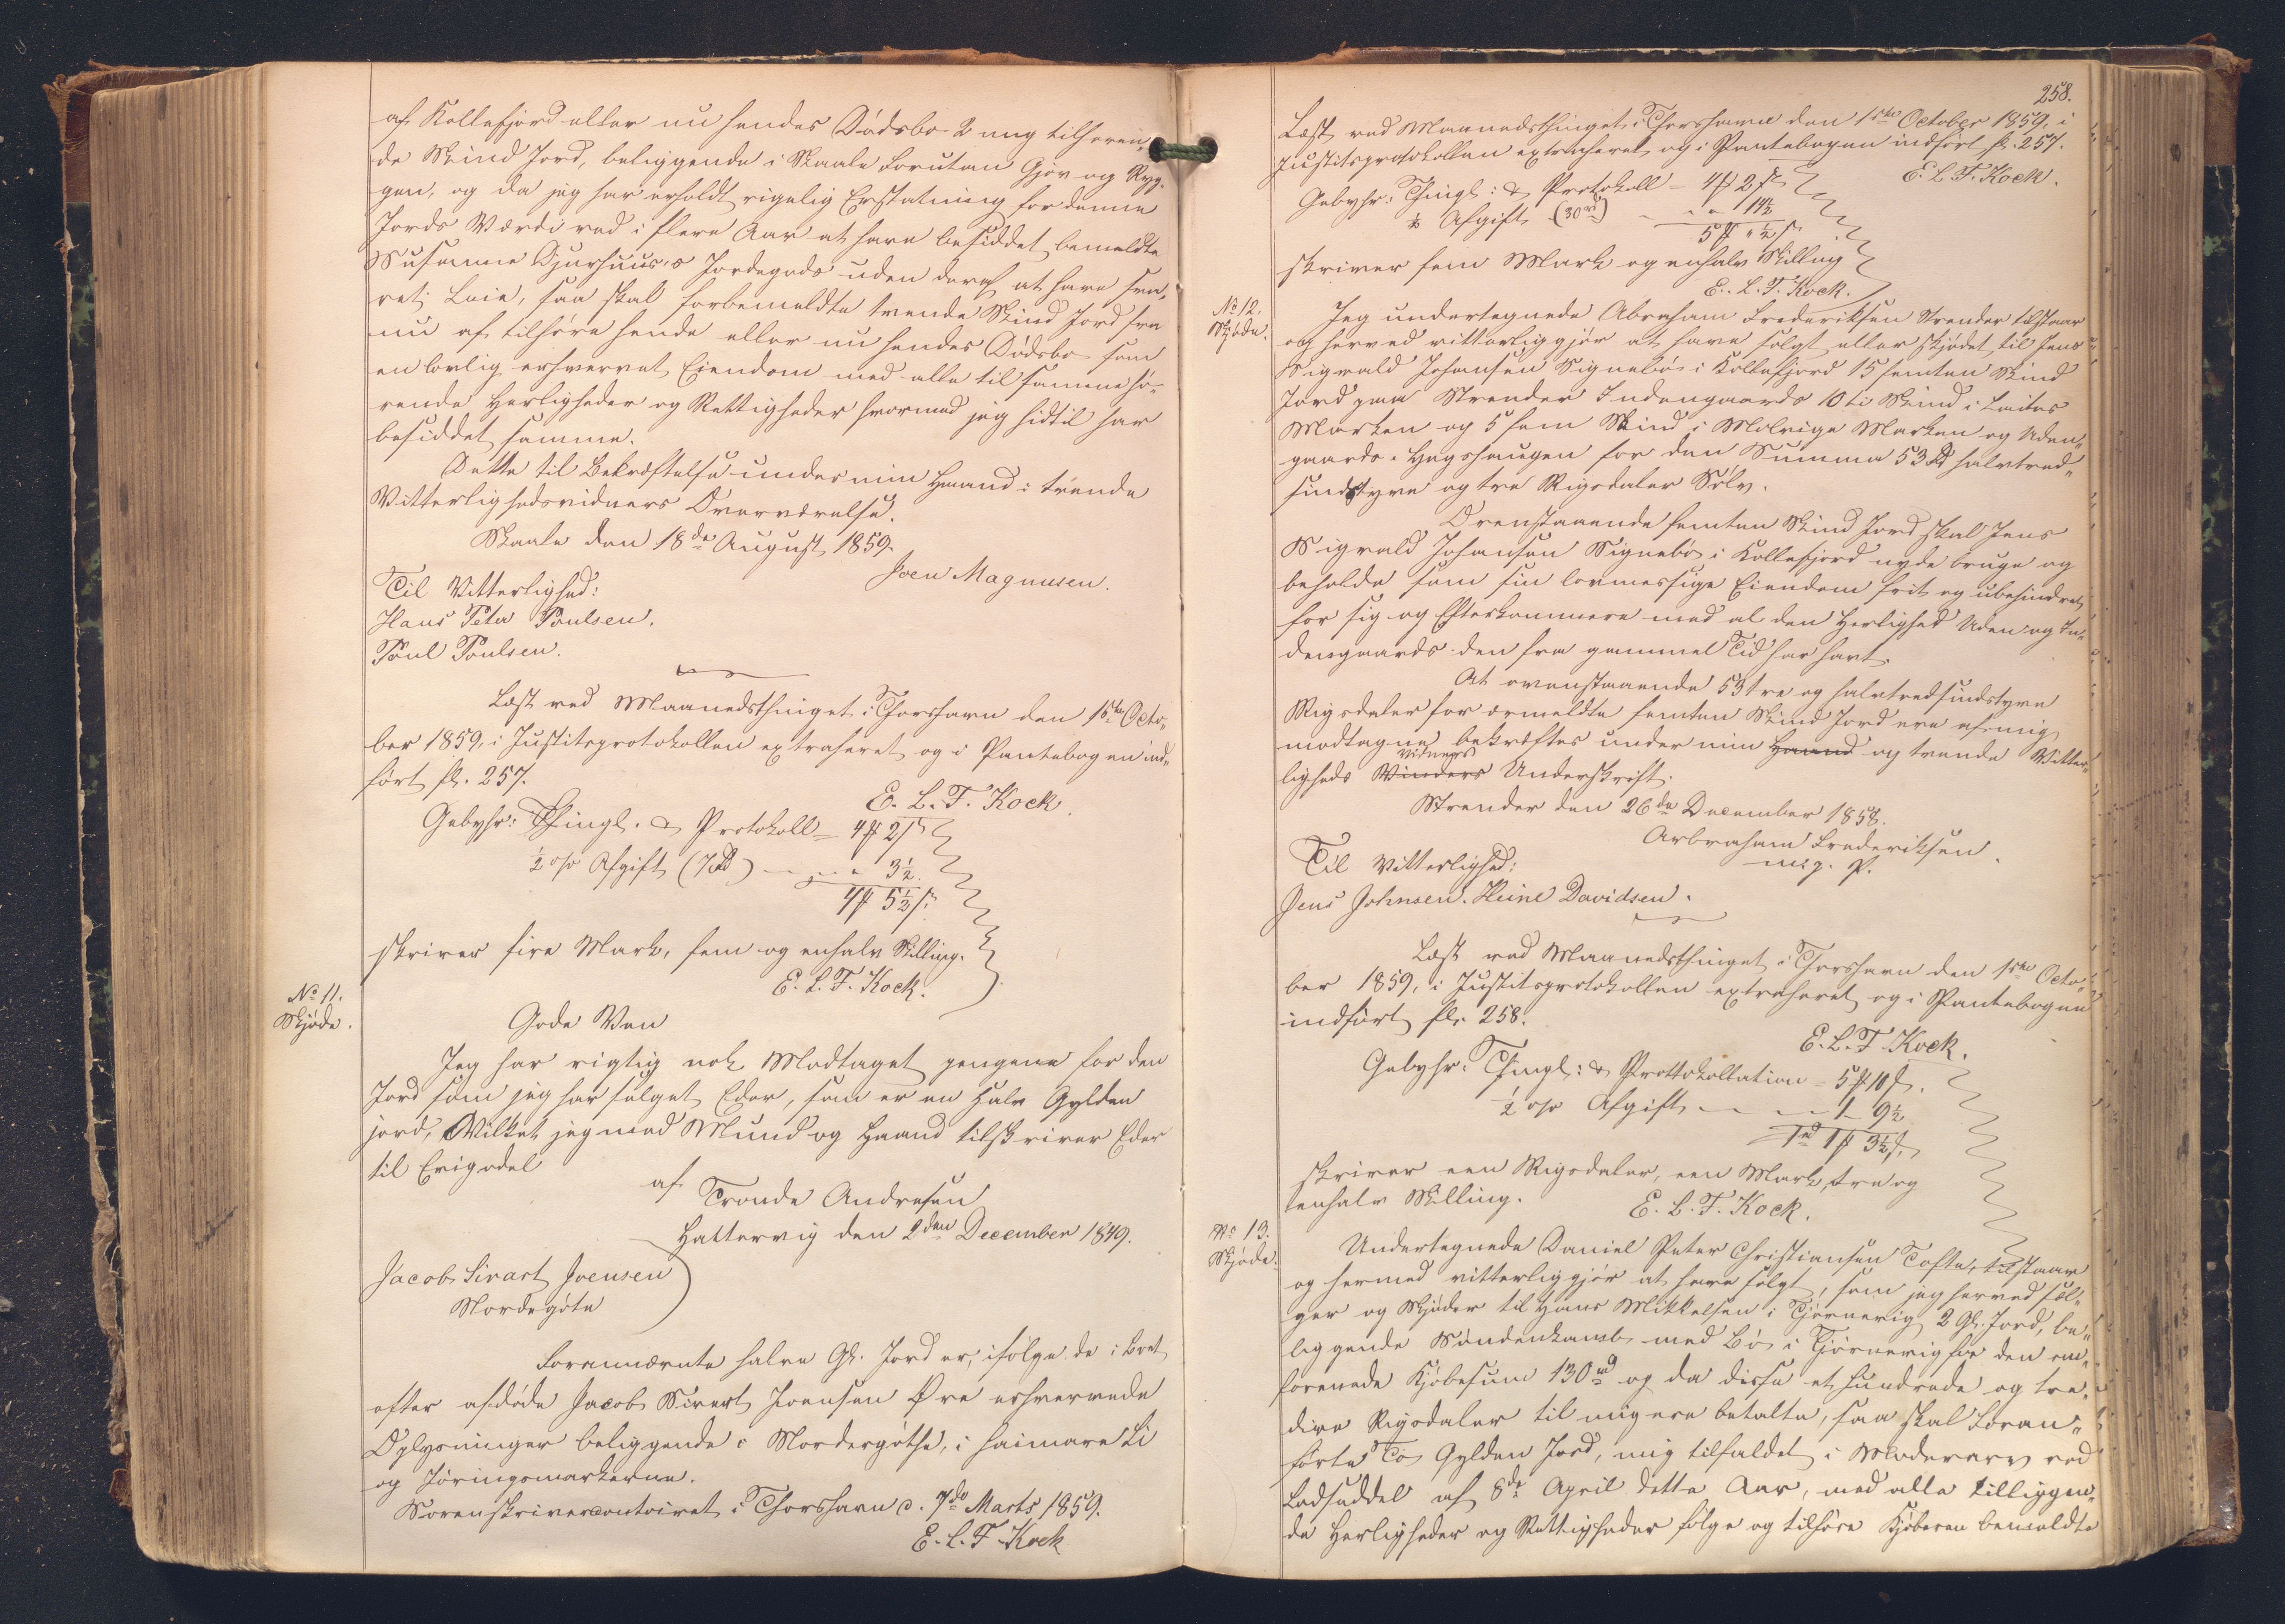 af Kollefjord eller nu hendes Dødsbo 2 mig tilhøren„
de Skind Jord, beliggende i Skaale Forutan Gjøv og Ryg„
gen, og da jeg har erholdt rigelig Erstatning for denne
Jords Værdi ved i flere Aar at have besiddet bemeldte
Susanne Djurhuus's Jordegods uden deraf at have sva„
ret Leie, saa skal forbemeldte tvende Skind Jord fra
nu af tilhøre hende eller nu hendes Dødsbo som
en lovlig erhvervet Eiendom med alle til samme hø„
rende Herligheder og Rettigheder hvormed jeg hidtil har
besiddet samme.
Dette til Bekræftelse under min Haand i tvende
Vitterlighedsvidners Overværelse.
Skaale den 18de August 1859.
Joen Magnusen.
Til Vitterlighed:
Hans Peter Poulsen.
Poul Poulsen.
Læst ved Maanedsthinget i Thorshavn den 1ste Octo„
ber 1859, i Justitsprotokollen extraheret og i Pantebogen ind„
ført fl. 257.
E. L. T. Kock.
Gebyhr: Thingl. & Protokoll = 4 ℔ 2 ß
½ o/o Afgift (7 Rd) - - - 3½.
4 ℔ 5½ ß
skriver fire Mark, fem og enhalv Skilling.
E. L. T. Kock.
No 11.
Skjøde.
Gode Ven
Jeg har rigtig nok Modtaget pengene for den
Jord som jeg har solget Eder, som er en Halv Gylden
jord, Vilket jeg med Mund og Haand tilskriver Eder
til Evigodel
af Tronde Andresen
Hattervig den 2den December 1849.
Jacob Sivart Joensen
Nordegøte
Forannævnte halve Gl. Jord er, ifølge de i Boet
efter afdøde Jacob Sivert Joensen Øre erhvervede
Oplysninger beliggende i Nordergøthe, i Heimara Li
og Jøringsmarkerne.
Sorenskrivercontoiret i Thorshavn d. 7de Marts 1859.
E. L. T. Kock
258.
Læst ved Maanedsthinget i Thorshavn den 1ste October 1859, i
Justitsprotokollen extraheret og i Pantebogen indført fl. 257.
E. L. T. Kock.
Gebyhr: Thingl: & Protokoll = 4 ℔ 2 ß
½ Afgift (30 rd) - - - 14½
5 ℔ " ½ ß
skriver fem Mark og enhalv Skilling
E. L. T. Kock.
No 12.
Skjøde.
Jeg undertegnede Abraham Frederiksen Strender tilstaar
og herved vitterliggjør at have solgt eller skjødet til Jens
Sigvald Johansen Signebø i Kollefjord 15 femten Skind
Jord paa Strender Indengaards 10 ti Skind i Leitis
Marken og 5 fem Skind i Molriga Marken og Uden„
gaards i Hagshaugen for den Summa 53 Rd halvtred„
sindstyve og tre Rigsdaler Sølv.
Ovenstaaende femten Skind Jord skal Jens
Sigvald Johansen Signebø i Kollefjord nyde bruge og
beholde som sin lovmessige Eiendom frit og ubehindret
for sig og Efterkommere med al den Herlighed Uden og In„
dengaards den fra gammel Tid har havt.
At ovenstaaende 53 tre og halvtredsindstyve
Rigsdaler for ermeldte femten Skind Jord ere af mig
modtagne bekræftes under min Haand og tvende Vitter„
ligheds Vinders vidners Underskrift.
Strender den 26de December 1858.
Arbraham Frederiksen
m. p. P.
Til Vitterlighed:
Jens Johnsen. Heine Davidsen.
Læst ved Maanedsthinget i Thorshavn den 1ste Octo„
ber 1859, i Justitsprotokollen extraheret og i Pantebogen
indført fl. 258.
E. L. T. Kock.
Gebyhr: Thingl: & Prottokollation = 5 ℔ 10 ß.
½ o/o Afgift - - - 1 - 9½
1 rd 1 ℔ 3½ ß.
skriver een Rigsdaler, een Mark, tre og
enhalv Skilling.
E. L. T. Kock.
No 13.
Skjøde.
Undertegnede Daniel Peter Christiansen Tofte, tilstaar
og hermed vitterliggjør at have solgt, som jeg herved sæl„
ger og Skjøder til Hans Mikkelsen i Tjørnevig 2 Gl. Jord, be„
liggende Søndenkamb med Bø i Tjørnevig for den om„
forenede Kjøbesum 130 rd og da disse et hundrede og tre„
dive Rigsdaler til mig ere betalte, saa skal Foran„
førte To Gylden Jord, mig tilfaldet i Moderarv ved
Lodseddel af 8de April dette Aar, med alle tilliggen„
de Herligheder og Rettigheder følge og tilhøre Kjøberen bemeldte